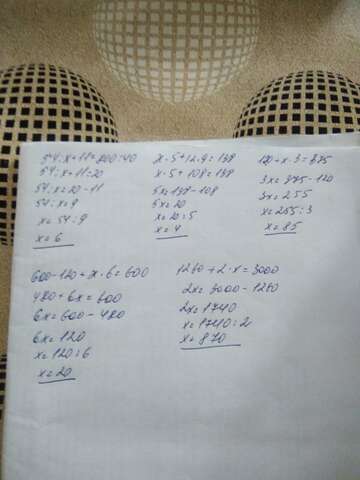 54:x+11=800:40
54:x+11=20
54:x=20-11
54:x=9
x=54:9
x=6
x·5+12·9=138
x·5+108=138
5x=20
x=20:5
x=4
120+x·3=375
3x=375-120
3x=255
x=255:3
x=85
600-120+x·6=600
480+6x=600
6x=600-480
6x=120
x=120:6
x=20
1260+2·x=3000
2x=3000-1260
2x=1740
x=1740:2
x=870